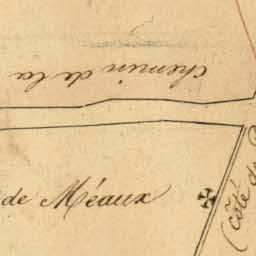 chemin de la
de Méaux
(côté de